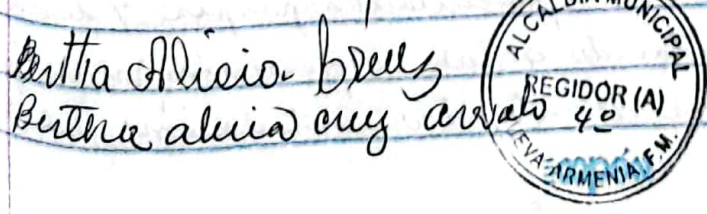 Bertha Alicia Cruz
Bertha alicia cruz arevalo
ALCALDIA MUNICIPAL
REGIDOR (A)
4º
NUEVA ARMENIA, F.M.